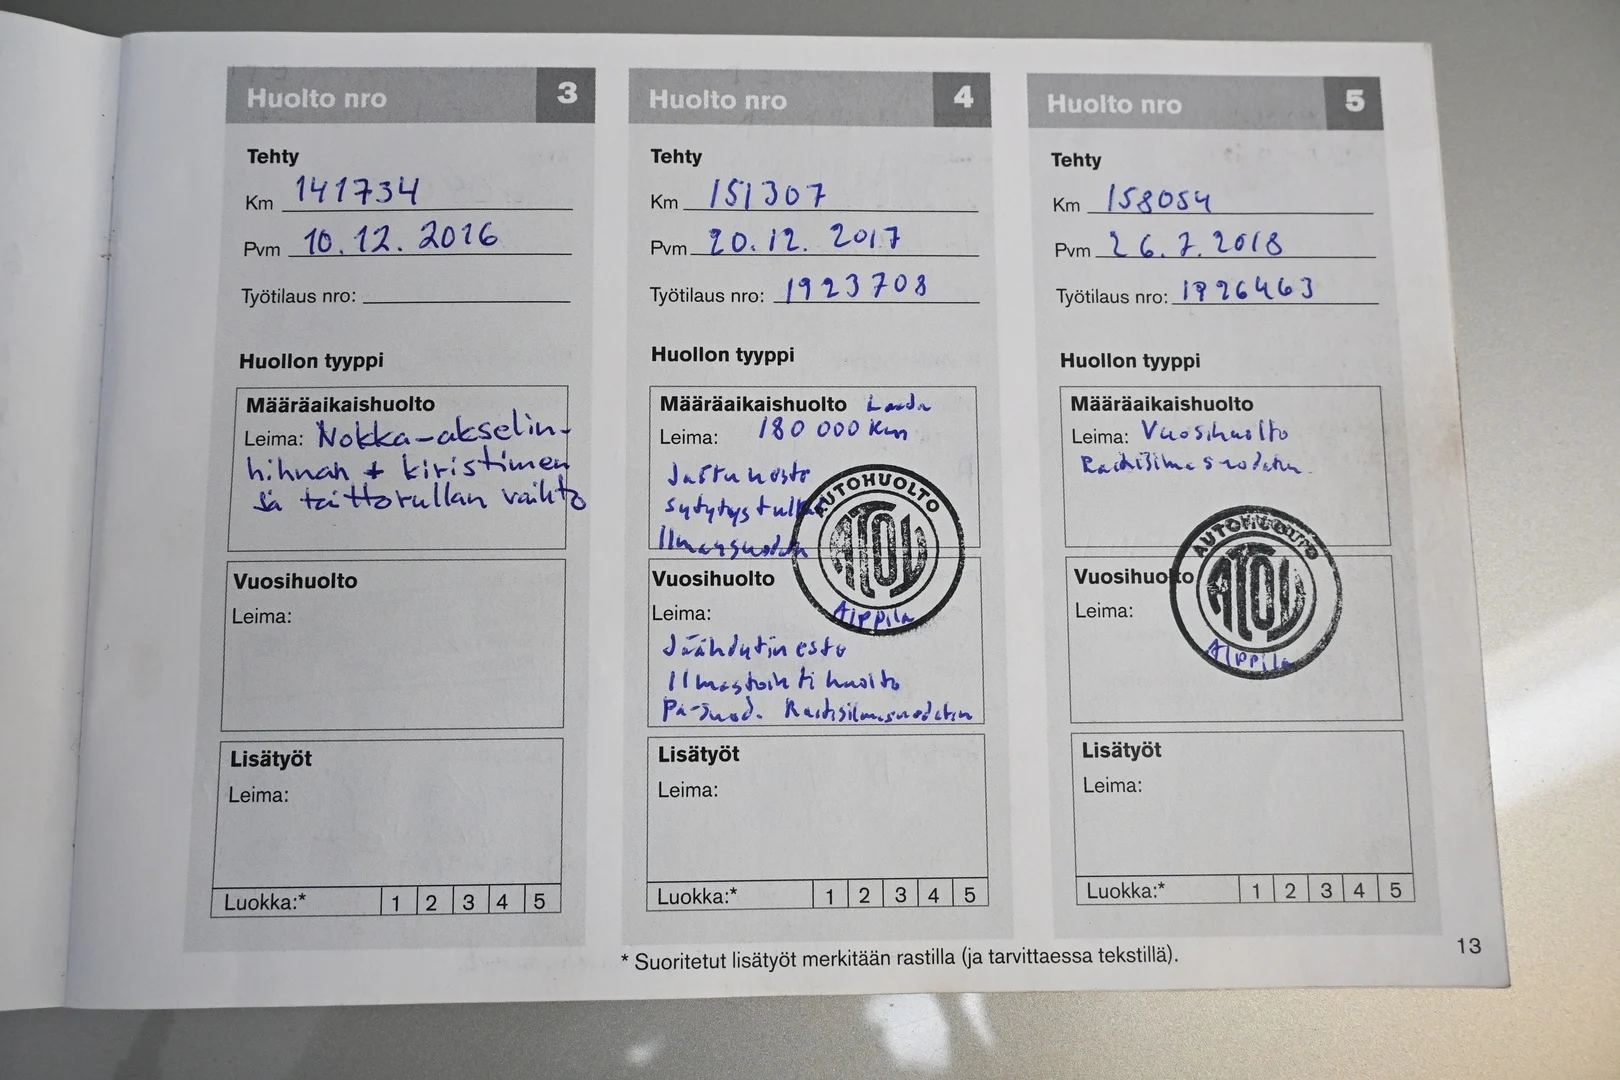 Huolto nro 3
Tehty
Km 141734
Pvm 10.12.2016
Työtilaus nro:
Huollon tyyppi
Määräaikaishuolto
Leima: Nokka-akselin-
hihnan + kiristimen
ja taittorullan vaihto
Vuosihuolto
Leima:
Lisätyöt
Leima:
Luokka:* 1 2 3 4 5
Huolto nro 4
Tehty
Km 151307
Pvm 20.12.2017
Työtilaus nro: 1923708
Huollon tyyppi
Määräaikaishuolto Laaja
Leima: 180 000 Km
Jarruneste
Sytytystulpat
Ilmansuodatin
AUTOHUOLTO
ATOY
Alppila
Vuosihuolto
Leima:
Jäähdytinneste
Ilmastointihuolto
Pa-Suod. Raitisilmasuodatin
Lisätyöt
Leima:
Luokka:* 1 2 3 4 5
Huolto nro 5
Tehty
Km 158054
Pvm 26.7.2018
Työtilaus nro: 1926463
Huollon tyyppi
Määräaikaishuolto
Leima: Vuosihuolto
Raitisilmasuodatin
AUTOHUOLTO
ATOY
Alppila
Vuosihuolto
Leima:
Lisätyöt
Leima:
Luokka:* 1 2 3 4 5
* Suoritetut lisätyöt merkitään rastilla (ja tarvittaessa tekstillä).
13